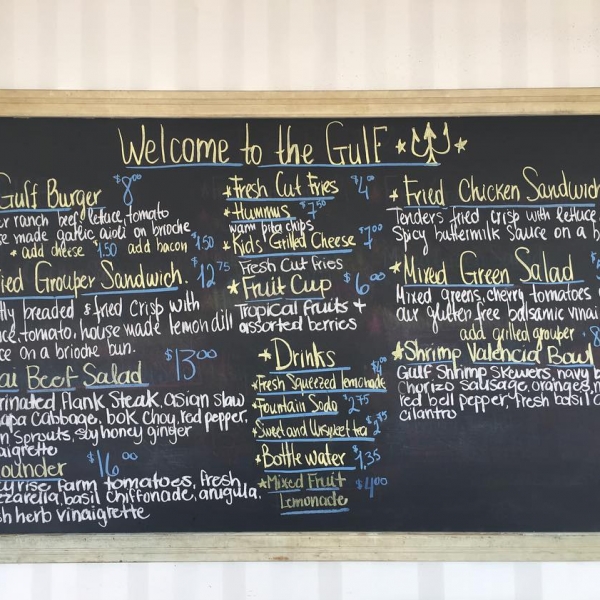 Welcome to the Gulf
Gulf Burger $8⁰⁰
ranch beef, lettuce, tomato
made garlic aioli on brioche
* add cheese $1.50 add bacon $1.50
Grouper Sandwich. $12⁷⁵
breaded & fried crisp with
tomato, house made lemon dill
on a brioche bun.
Beef Salad $13⁰⁰
Flank Steak, asian slaw
Cabbage, bok choy, red pepper,
Sprouts, soy honey ginger
$16⁰⁰
farm tomatoes, fresh
basil chiffonade, arugula.
herb vinaigrette
*Fresh Cut Fries $4⁰⁰
*Hummus $7⁵⁰
warm pita chips
*Kids' Grilled Cheese $7⁰⁰
Fresh Cut fries
*Fruit Cup $6⁰⁰
Tropical fruits +
assorted berries
*Drinks
*Fresh Squeezed lemonade $4⁰⁰
*Fountain Soda $2⁷⁵
*Sweet and Unsweet tea
*Bottle water $1.35
*Mixed Fruit $4⁰⁰
Lemonade
*Fried Chicken Sandwich
Tenders fried crisp with lettuce
Spicy buttermilk Sauce on a b
*Mixed Green Salad
Mixed greens, cherry tomatoes
our gluten free balsamic vinai
add grilled grouper
*Shrimp Valencia Bowl
Gulf Shrimp Skewers, navy b
Chorizo sausage, oranges,
red bell pepper, fresh basil
cilantro